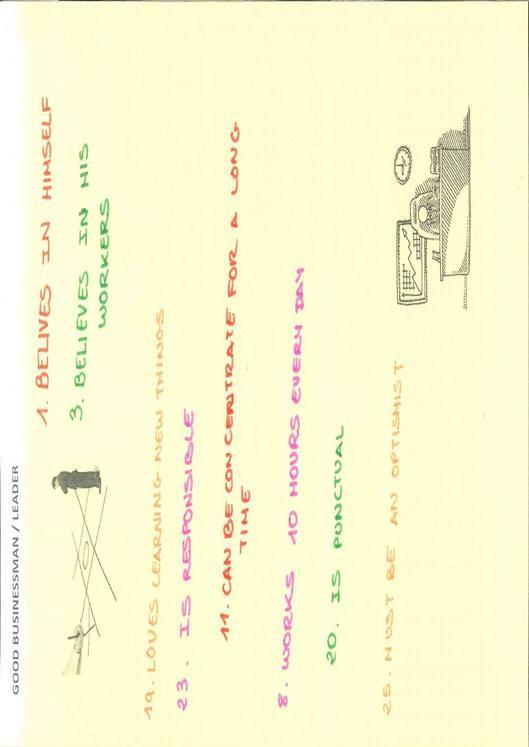 GOOD BUSINESSMAN / LEADER
1. BELIVES IN HIMSELF
3. BELIEVES IN HIS
WORKERS
19. LOVES LEARNING NEW THINGS
23. IS RESPONSIBLE
11. CAN BE CONCENTRATE FOR A LONG
TIME
8. WORKS 10 HOURS EVERY DAY
20. IS PUNCTUAL
25. MUST BE AN OPTIMIST